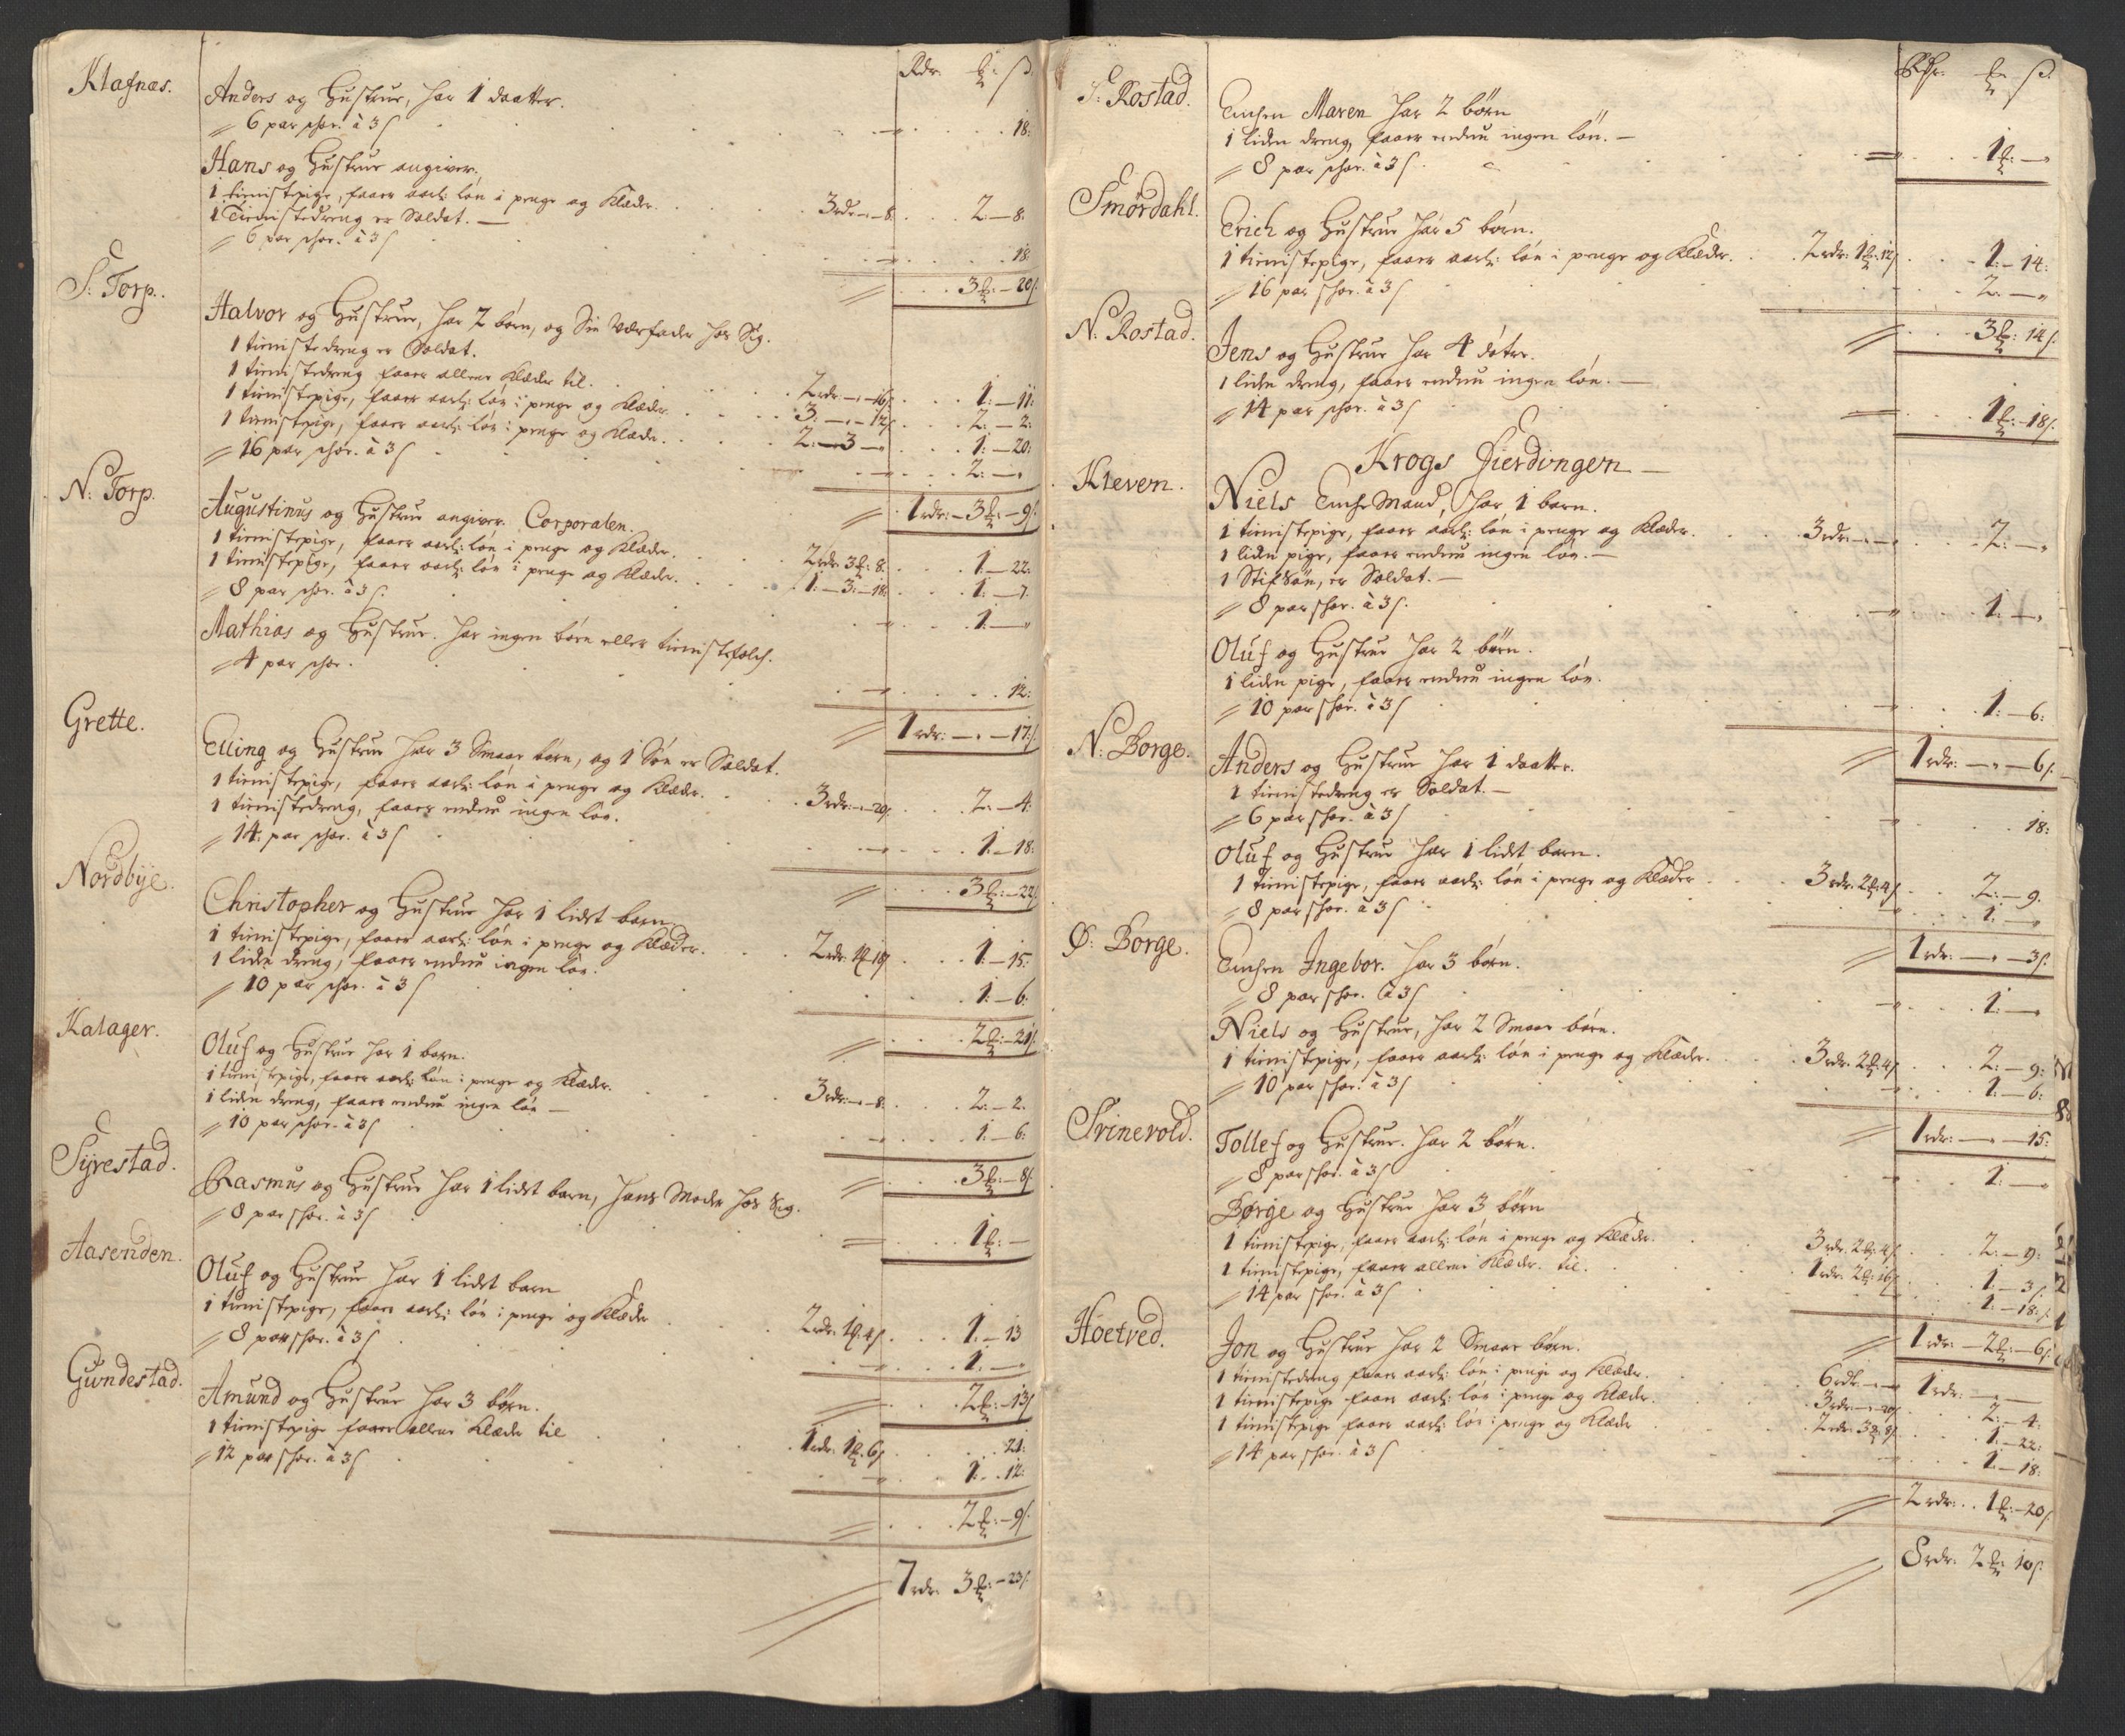 Rdr. ℔: ß.
Klafnæs.
Anders og Hustrue, har 1 daatter.
6 par schoe. à 3ß 18:
Hans og Hustrue angiver.
1 tienistepige, faaer aarl: løn i penge og Klæder. 3rdr: - 8. 2 - 8:
1 Tienistedreng er Soldat.
6 par schoe. à 3ß 18:
3℔: - 20ß.
S: Torp.
Halvor og Hustrue, har 2 børn, og Sin Værfader hos Sig.
1 tienistedreng er Soldat.
1 tienistedreng faaer allene Klæder til. 2rdr - 16ß 1: - 11:
1 tienistepige, faaer aarl: løn i penge og Klæder. 3. - 12ß 2: - 2:
1 tienistepige, faaer aarl: løn i penge og Klæder. 2: - 3 - 1: - 20:
16 par schoe. à 3ß 2: -
1rdr: - 3℔: - 9ß.
N: Torp.
Augustinus og Hustrue angiver. Corporalen.
1 tienistepige, faaer aarl: løn i penge og Klæder. 2rdr 3℔: 8. 1 - 22:
1 tienistepige, faaer aarl: løn i penge og Klæder. 1: - 3: - 18: 1: - 7.
8 par schoe. à 3ß. 1: -
Mathias og Hustrue. har ingen børn eller tienistefolch.
4 par schoe. 12:
1rdr: - - 17ß.
Grette.
Elling og Hustrue har 3 Smaae børn, og 1 Søn er Soldat.
1 tienistepige, faaer aarl: løn i penge og Klæder. 3rdr: - 20ß 2: - 4:
1 tienistedreng, faaer endnu ingen løn.
14: par schoe. à 3ß 1. - 18:
3℔: - 22ß
Nordbÿe.
Christopher og Hustrue har 1 lidet barn.
1 tienistepige, faaer aarl: løn i penge og Klæder. 2rdr: 1℔ 18ß 1: - 15:
1 liden dreng, faaer endnu ingen løn.
10 par schoe. à 3ß 1: - 6:
2℔: - 21ß
Kalager.
Oluf og Hustrue har 1 barn.
1 tienistepige, faaer aarl: løn i penge og Klæder. 3rdr: - 8. 2: - 2.
1 liden dreng, faaer endnu ingen løn -
10 par schoe. à 3ß 1: - 6:
3℔: - 8ß
Sÿrestad.
Rasmus og Hustrue har 1 lidet barn, hans Moder hos Sig.
8 par schoe. à 3ß 1℔: -
Aasenden.
Oluf og Hustrue har 1 lidet barn
1 tienistepige, faaer aarl: løn i penge og Klæder 2rdr. 1℔. 4ß. 1: - 13
8 par schoe. à 3ß 1: -
2℔: - 13ß
Gundestad.
Amund og Hustrue har 3 børn.
1 tienistepige faaer allene Klæder til 1rdr: 1℔. 6ß 21:
12 par schoe. à 3ß 1: 12:
2℔: - 9ß.
7rdr: 3℔: - 23ß.
Rdr. ℔ ß.
S: Rostad.
Enchen Maren har 2 børn
1 liden dreng, faaer endnu ingen løn. -
8 par schoe. à 3ß. 1℔: -
Smørdahl.
Erich og Hustrue har 5 børn.
1 tienistepige, faaer aarl: løn i penge og Klæder. 2rdr: 1℔: 12ß 1: - 14:
16 par schoe. à 3ß 2: -
3℔: 14ß.
N: Rostad.
Jens og Hustrue har 4 døtre.
1 liden dreng, faaer endnu ingen løn. -
14 par schoe. à 3ß 1℔: - 18ß.
Krogs Fierdingen
Kleven.
Niels Enche Mand, har 1 barn.
1 tienistepige, faaer aarl: løn i penge og Klæder. 3rdr: - 2: -
1 liden pige, faaer endnu ingen løn. -
1 Stifsøn, er Soldat. -
8 par schoe. à 3ß. 1: -
Oluf og Hustrue har 2 børn.
1 liden pige, faaer endnu ingen løn.
10 par schoe. à 3ß 1: - 6:
1rdr: - - 6ß.
N: Borge.
Anders og Hustrue har 1 daatter.
1 tienistedreng er Soldat. -
6 par schoe. à 3ß 18:
Oluf og Hustrue har 1 lidet barn.
1 tienistepige, faaer aarl: løn i penge og Klæder 3rdr: 2℔: 4ß 2: - 9.
8 par schoe. à 3ß 1: -
1rdr: - - 3ß.
Ø: Borge.
Enchen Ingebor. har 3 børn.
8 par schoe. à 3ß 1: -
Niels og Hustrue, har 2 Smaae børn.
1 tienistepige, faaer aarl: løn i penge og Klæder. 3rdr. 2℔: 4ß 2: - 9:
10 par schoe. à 3ß 1: - 6:
1rdr: - - 15:
Trinevold.
Tollef og Hustrue. har 2 børn.
8 par schoe. à 3ß 1: -
Børge og Hustrue har 3 børn
1 tienistepige, faaer aarl: løn i penge og Klæder. 3rdr. 2℔: 4ß. 2: - 9:
1 tienistepige, faaer allene Klæder. til. 1rdr: 2℔: 16ß 1: - 3ß
14 par schoe. à 3ß 1: - 18:ß
1rdr: - 2℔: - 6ß.
Hoetved.
Jon og Hustrue har 2 Smaae børn.
1 tienistedreng faaer aarl: løn i penge og Klæder. 6rdr: - 1rdr: -
1 tienistepige faaer aarl: løn i penge og Klæder. 3rdr: - 20ß 2: - 4:
1 tienistepige faaer aarl: løn i penge og Klæder 2rdr: 3℔: 8ß. 1: - 22:
14 par schoe. à 3ß 1: - 18:
2rdr: 1℔: - 20ß.
8rdr: 2℔: 10ß.